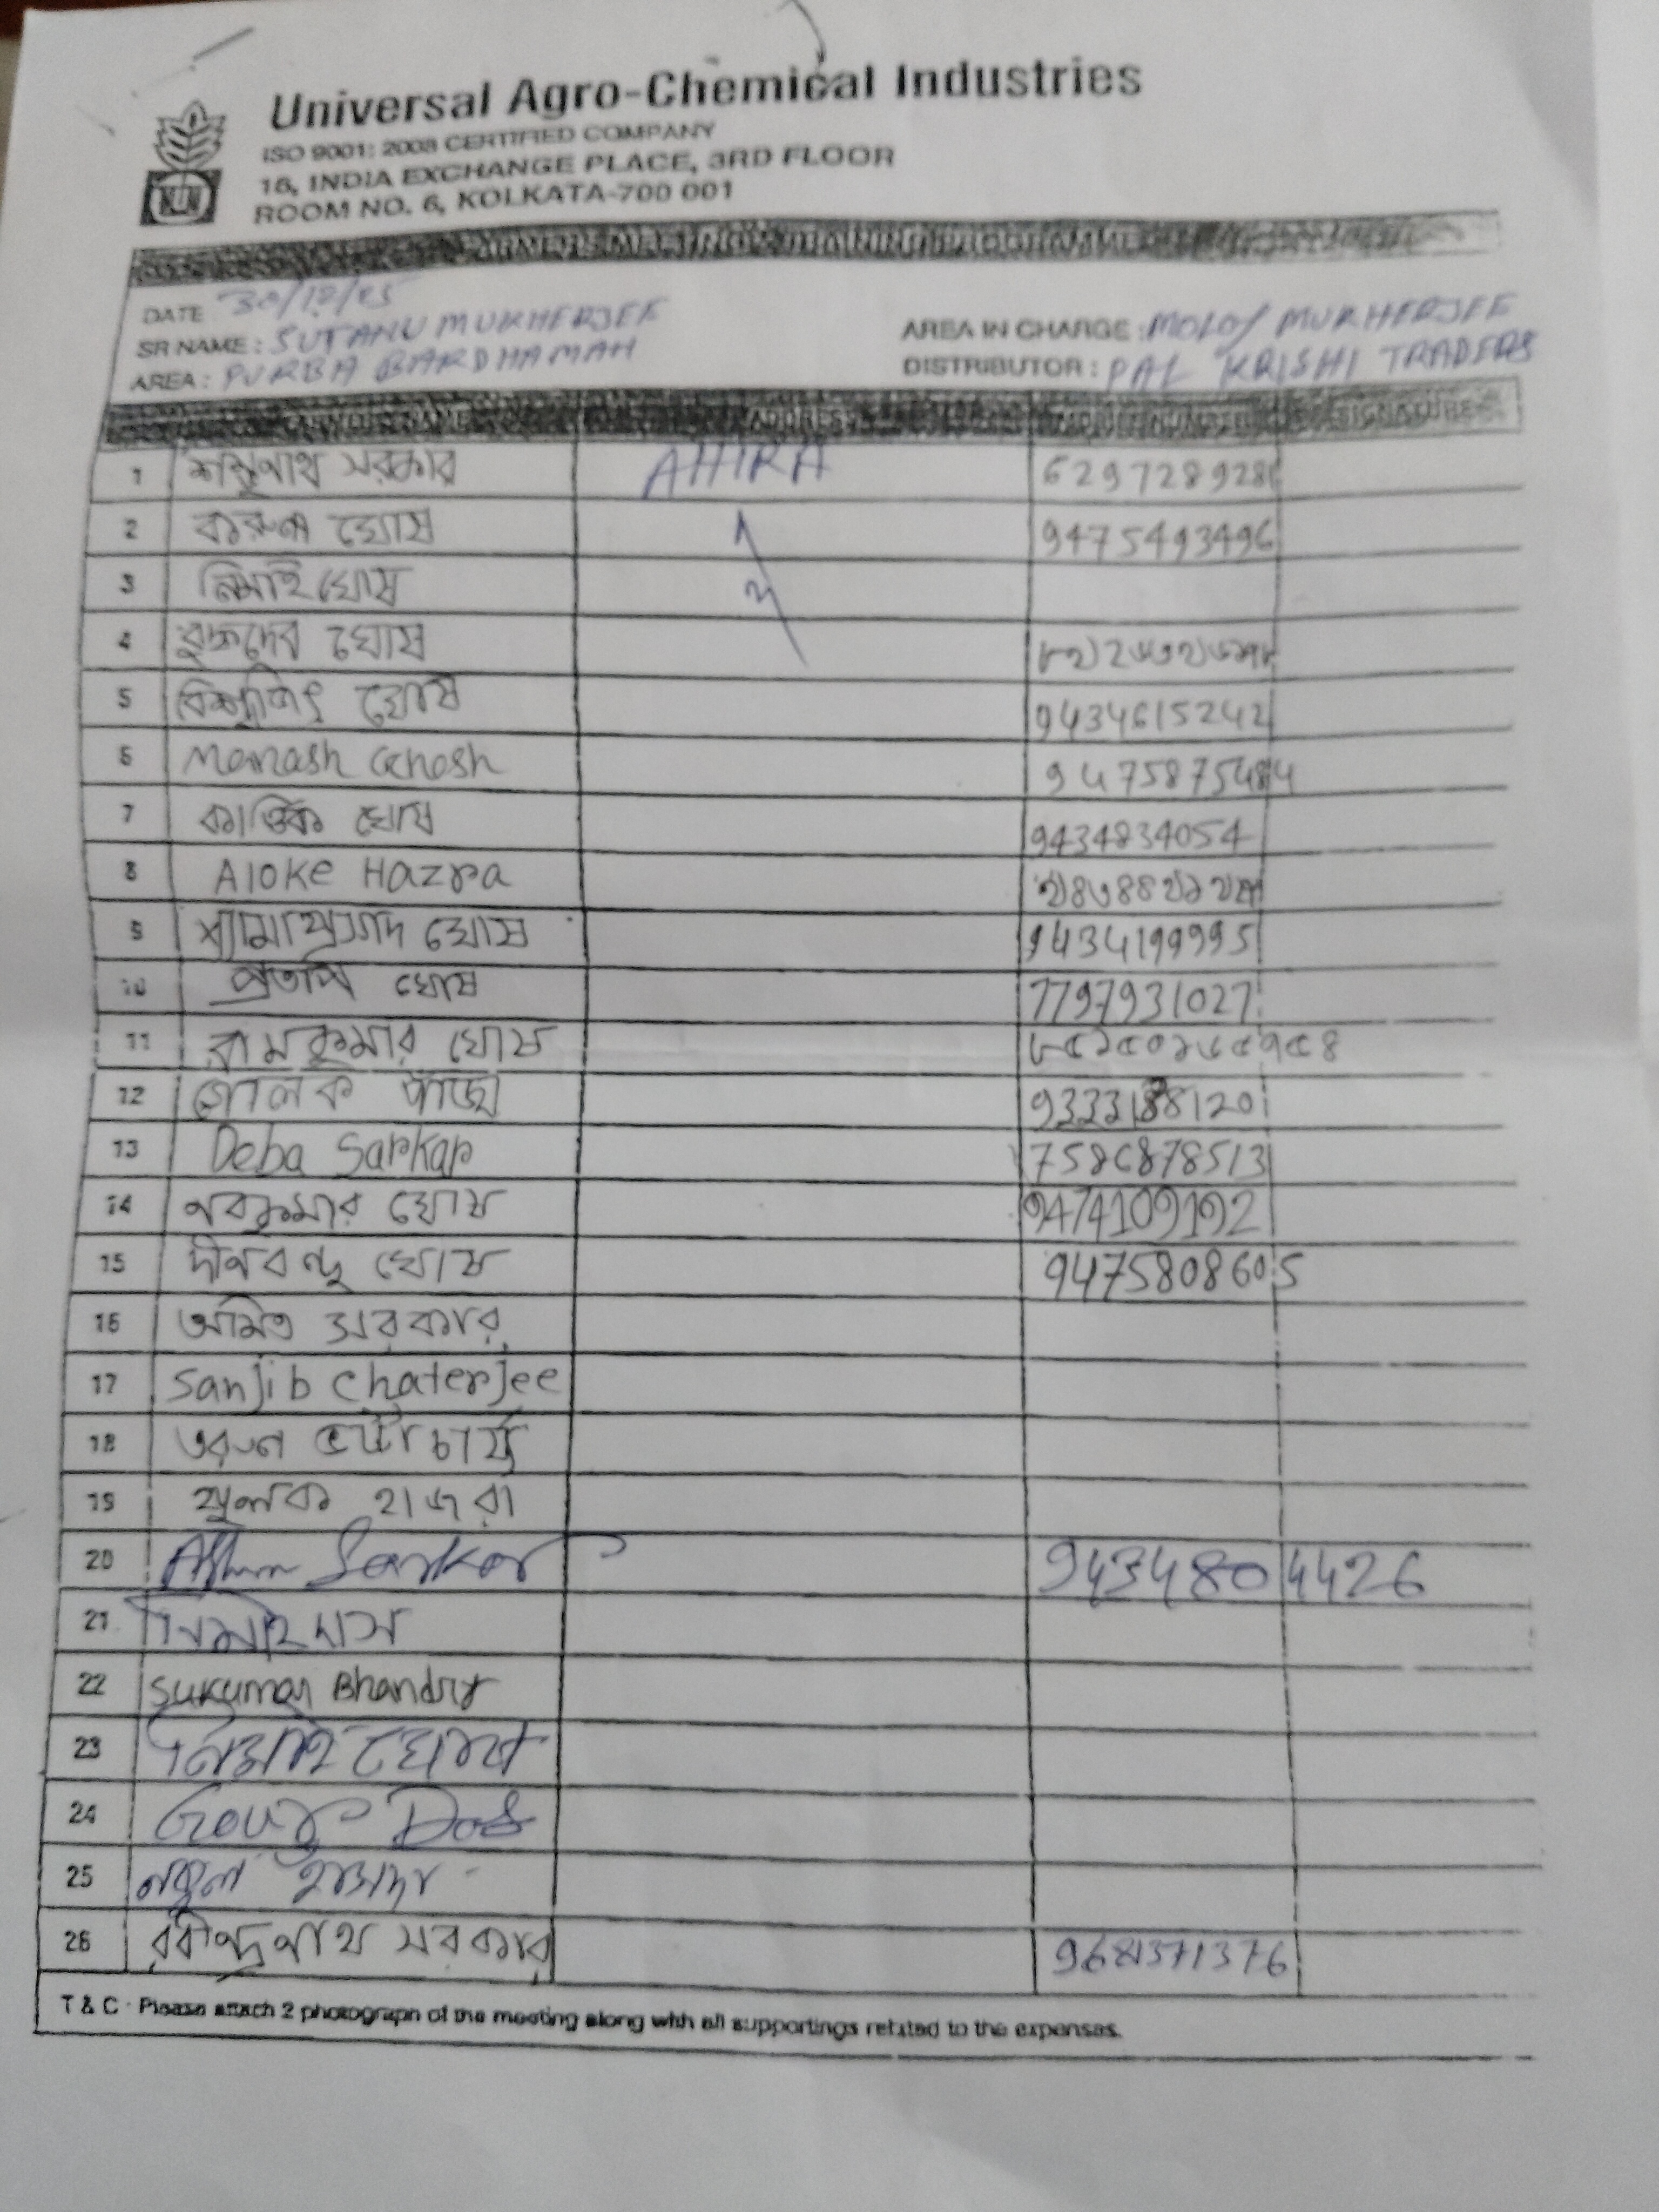 Universal Agro-Chemical Industries
ISO 9001: 2008 CERTIFIED COMPANY
16, INDIA EXCHANGE PLACE, 3RD FLOOR
ROOM NO. 6, KOLKATA-700 001
PROGRAMME
DATE 30/12/25
SR NAME : SUTANU MUKHERJEE AREA IN CHARGE : MOLOY MUKHERJEE
AREA : PURBA BARDHAMAN DISTRIBUTOR : PAL KRISHI TRADERS
NAME ADDRESS NUMBER SIGNATURE
1 শম্ভুনাথ সরকার AHIRA 629728928
2 ঘোষ 9475493496
3 নিমাই ঘোষ
4 বুদ্ধদেব ঘোষ
5 বিশ্বজিৎ ঘোষ 9434615242
6 Manash Ghosh 9475875484
7 কার্ত্তিক ঘোষ 9434834054
8 Aloke Hazra
9 শ্যামাপ্রসাদ ঘোষ 9434199995
10 ঘোষ 7797931027
11 রামকুমার ঘোষ
12 গোলক
13 Deba Sarkar 7586878513
14 নবকুমার ঘোষ 9474109192
15 দীনবন্ধু ঘোষ 9475808605
16 অমিত সরকার
17 Sanjib Chaterjee
18 তরুন ভট্টাচার্য্য
19 পুলক হাজরা
20 Sarkar 9434804426
21 নিমাই দাস
22 Sukumar Bhandry
23 নিমাই ঘোষ
24 Gour Das
25 নকুল
26 রবীন্দ্রনাথ সরকার
T & C : Please attach 2 photograph of the meeting along with all supportings related to the expenses.